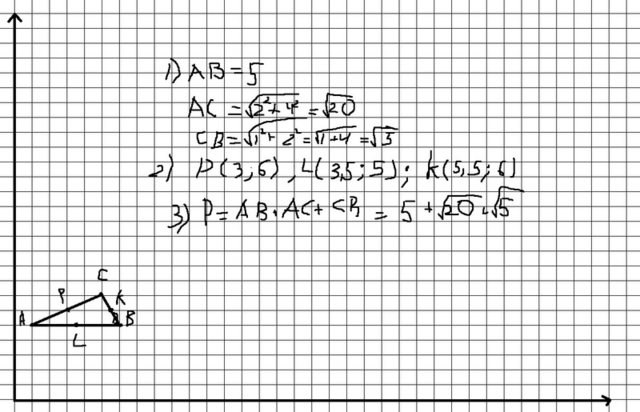 1) AB = 5
AC = √2²+4² = √20
CB = √1²+2² = √1+4 = √5
2) P(3,6), L(3,5;5); K(5,5;6)
3) P = AB · AC + CB = 5 + √20 + √5
C
P K
A B
L